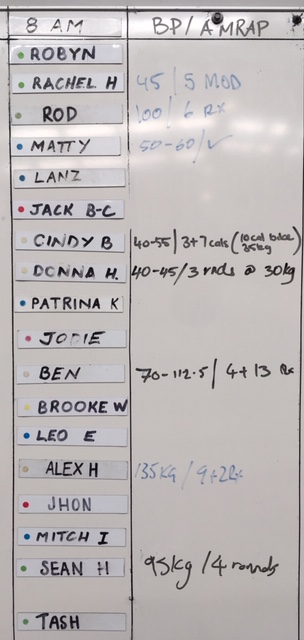 8 AM BP/AMRAP
ROBYN
RACHEL H 45 / 5 MOD
ROD 100 / 6 Rx
MATTY 50-60/✓
LANZ
JACK B-C
CINDY B 40-55 / 3+7 cals (10 cal bike 35kg
DONNA H. 40-45/3 rnds @ 30kg
PATRINA K
JODIE
BEN 70-112.5 / 4+13 Rx
BROOKE W
LEO E
ALEX H 135KG / 9+2Rx
JHON
MITCH I
SEAN H 95kg / 4 rounds
TASH